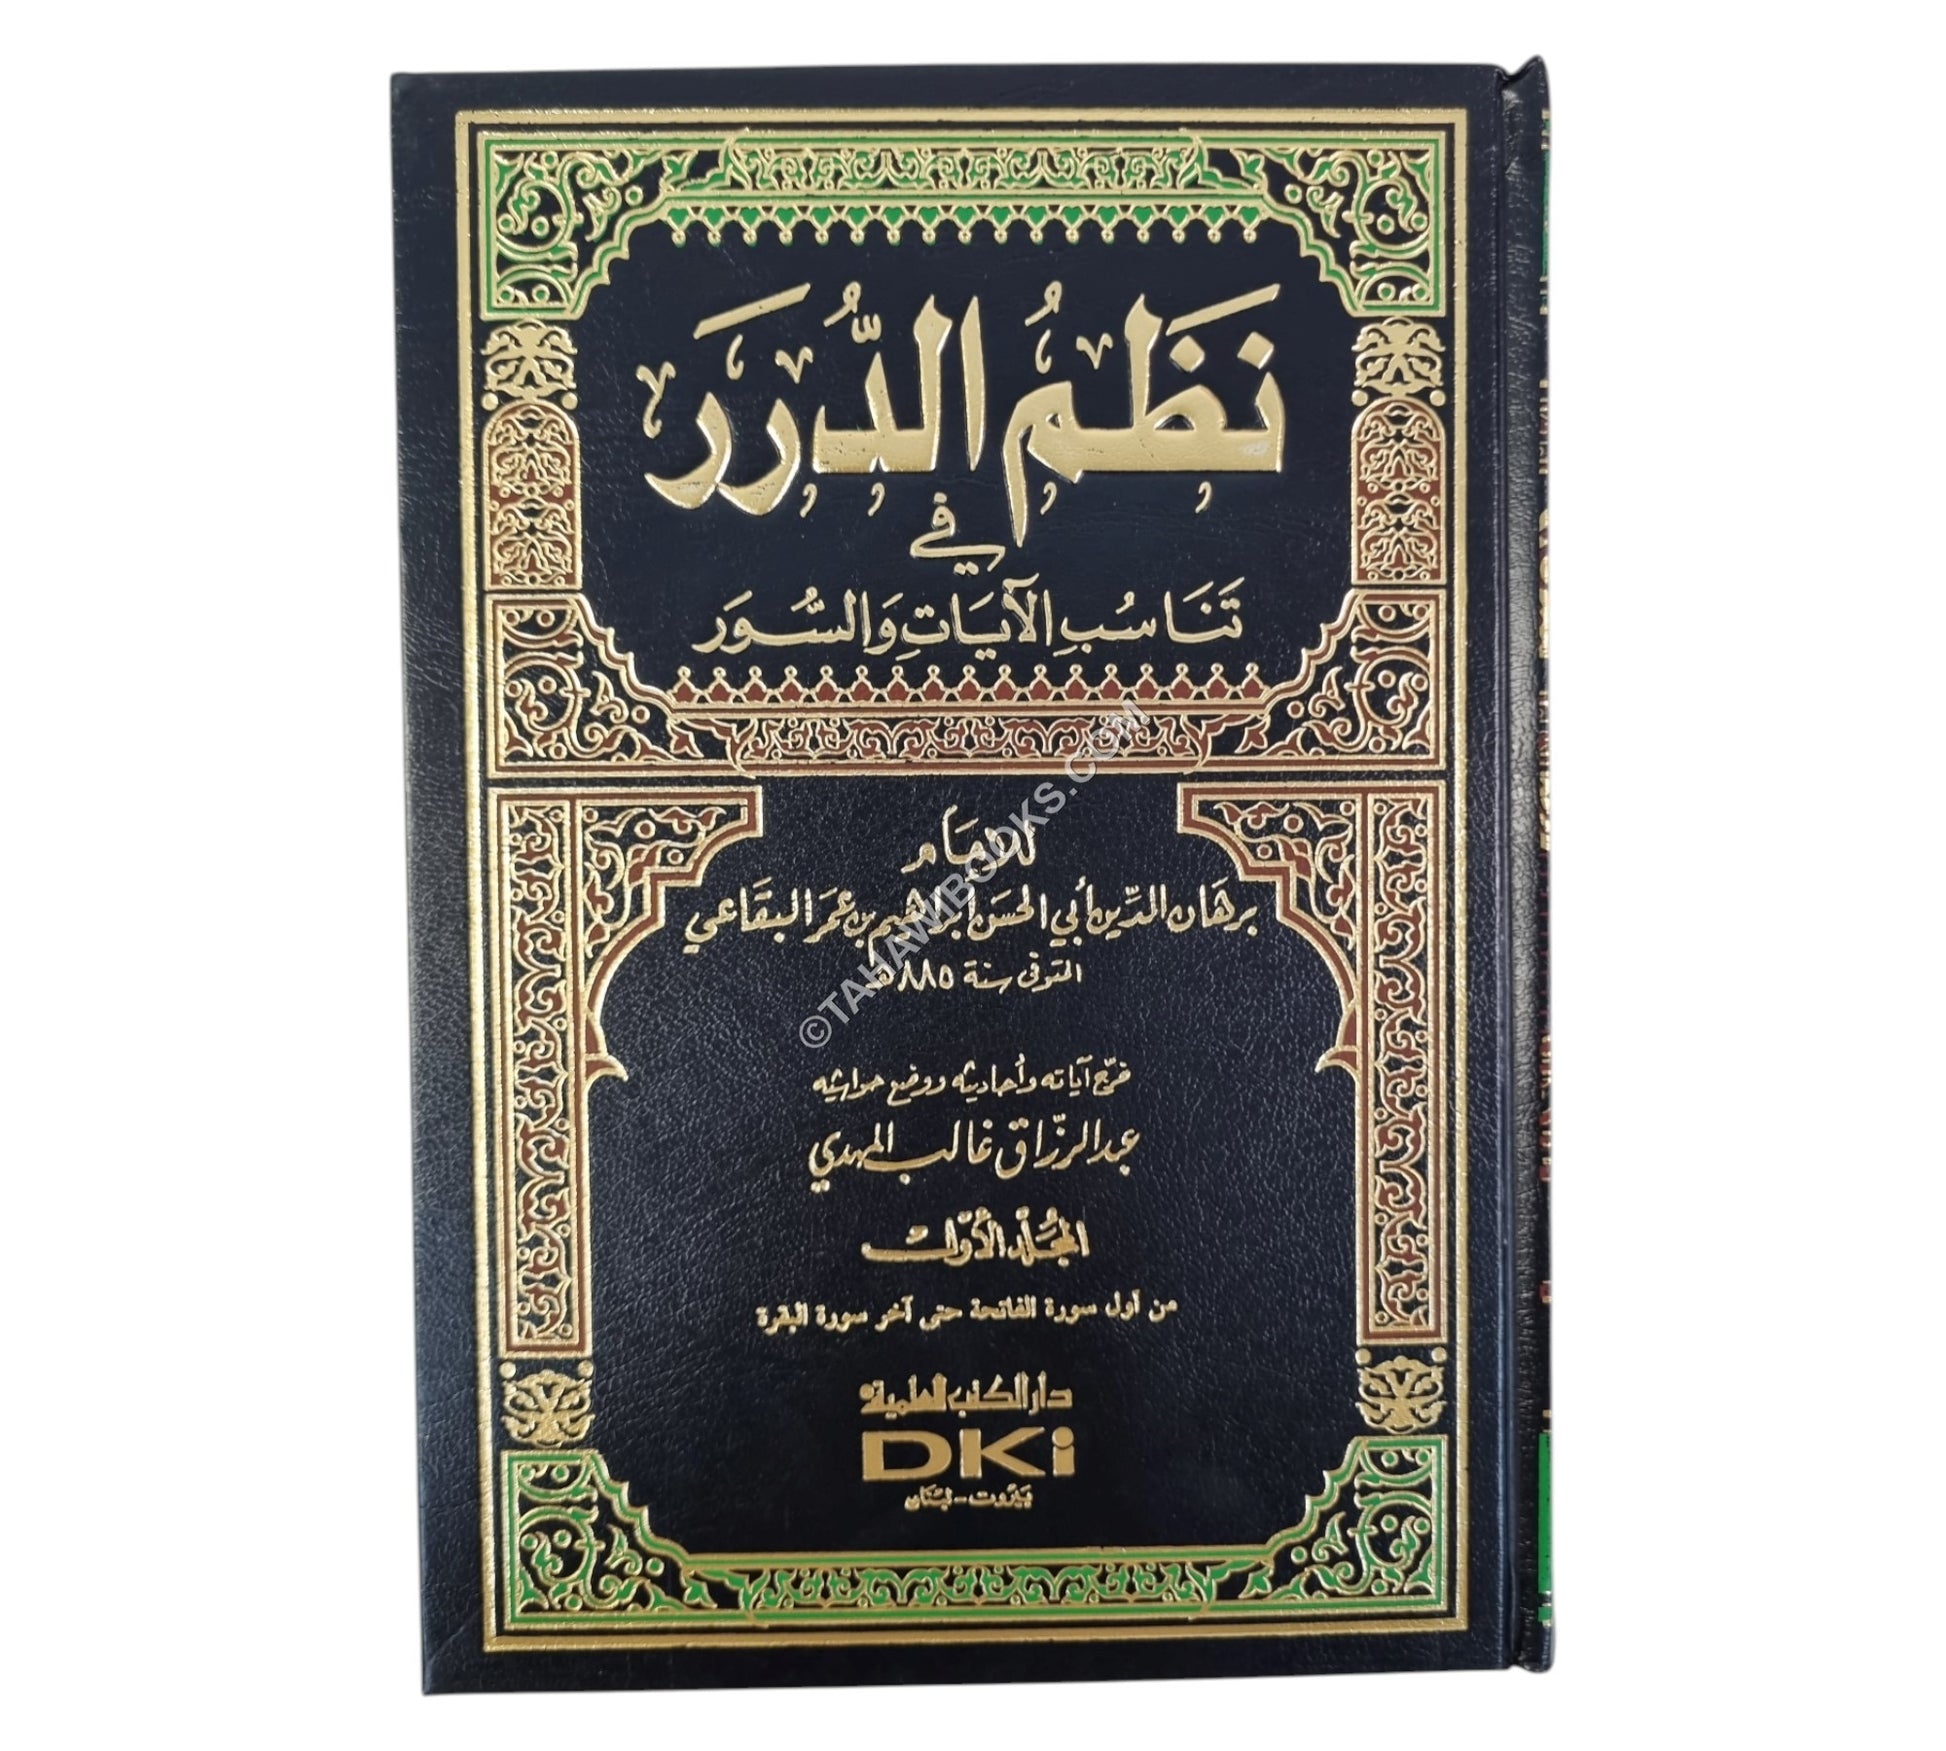 نَظْمُ الدُّرَرِ
فِي
تَنَاسُبِ الآيَاتِ وَالسُّوَرِ
للإمَام
برهَان الدِّين أبي الحسَن إبراهيم بن عمَر البقَاعي
المتوفى سنة ٨٨٥هـ
خرّج آياته وأحاديثه ووضع حواشيه
عبد الرزّاق غالب المهدي
المجَلّد الأوّل
من أول سورة الفاتحة حتى آخر سورة البقرة
دار الكتب العلمية
DKi
بَيْروت - لبْنَان
©TAHAWIBOOKS.COM